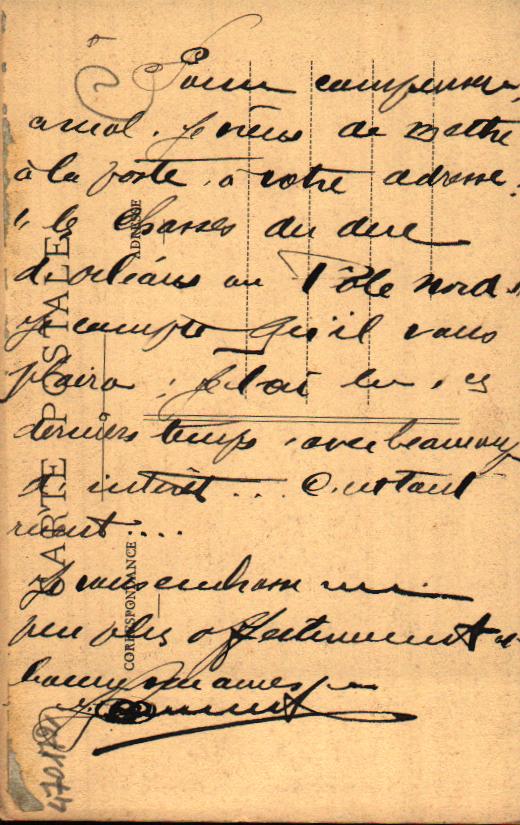 2
Pour compenser
amal. Je viens de mettre
à la poste, à votre adresse:
"les chasses du duc
d'orléans au Pôle nord"
Je compte qu'il vous
plaira; je l'ai lu ces
derniers temps avec beaucoup
d'intérêt... C'est tout
Je vous embrasse
peu plus affectueusement
CARTE POSTALE
ADRESSE
CORRESPONDANCE
4701721